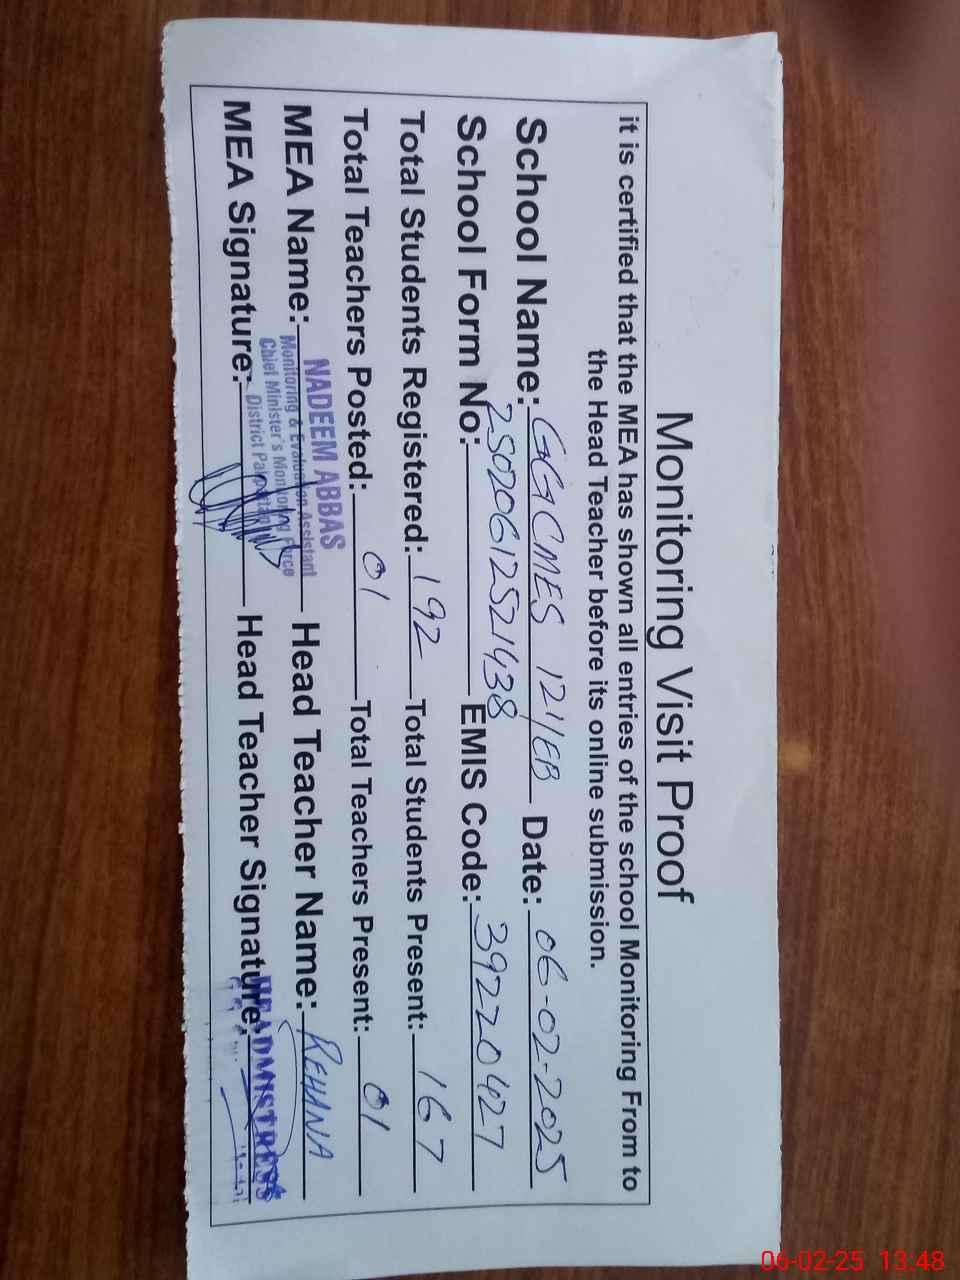 Monitoring Visit Proof
it is certified that the MEA has shown all entries of the school Monitoring From to
the Head Teacher before its online submission.
School Name: GGCMES 121/EB Date: 06-02-2025
School Form No: 25020612521438 EMIS Code: 39220427
Total Students Registered: 192 Total Students Present: 167
Total Teachers Posted: 01 Total Teachers Present: 01
MEA Name: NADEEM ABBAS Head Teacher Name: REHANA
Monitoring & Evaluation Assistant
Chief Minister's Monitoring Force
District Pakpattan
MEA Signature: Head Teacher Signature:
HEADMISTRESS
06-02-25 13:48